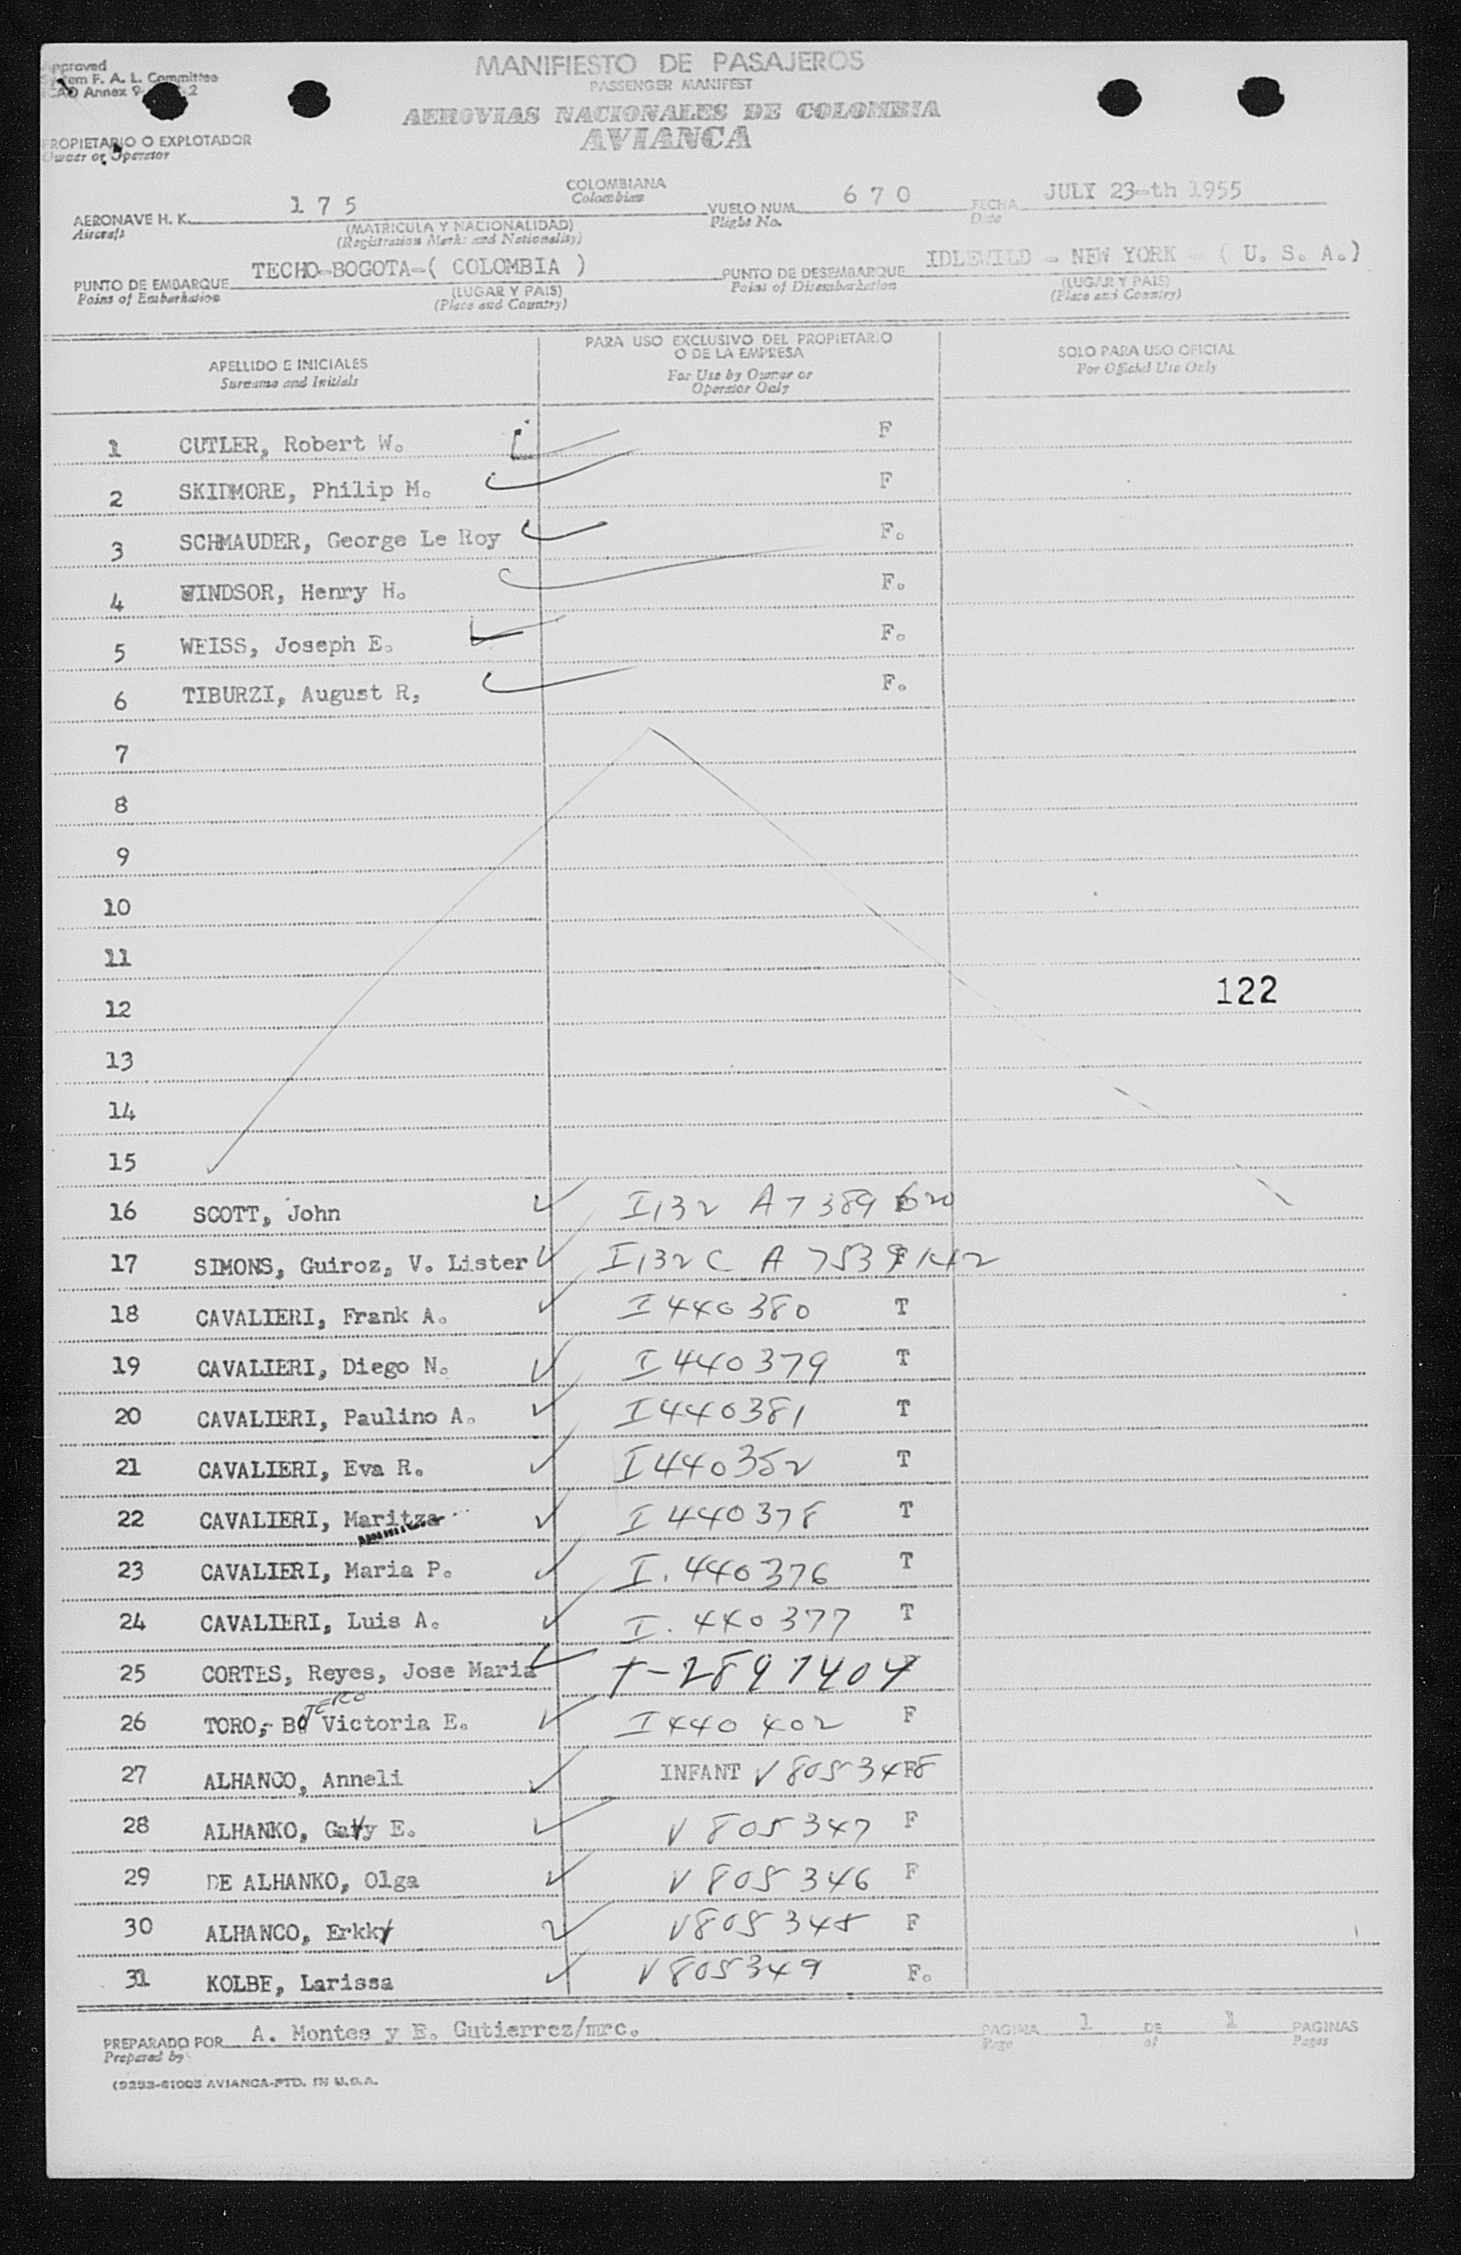 MANIFIESTO DE PASAJEROS
PASSENGER MANIFEST
AEROVIAS NACIONALES DE COLOMBIA
AVIANCA
F. A. L. Committee
Annex 9
PROPIETARIO O EXPLOTADOR
Owner or Operator
AERONAVE H. K. 175 COLOMBIANA VUELO NUM. 670 FECHA JULY 23-th 1955
Aircraft Colombian Flight No. Date
(MATRICULA Y NACIONALIDAD)
(Registration Marks and Nationality)
PUNTO DE EMBARQUE TECHO-BOGOTA-( COLOMBIA ) PUNTO DE DESEMBARQUE IDLEWILD - NEW YORK - ( U. S. A.)
Point of Embarkation (LUGAR Y PAIS) Point of Disembarkation (LUGAR Y PAIS)
(Place and Country) (Place and Country)
APELLIDO E INICIALES
Surname and Initials
PARA USO EXCLUSIVO DEL PROPIETARIO
O DE LA EMPRESA
For Use by Owner or
Operator Only
SOLO PARA USO OFICIAL
For Official Use Only
1 CUTLER, Robert W. F
2 SKIDMORE, Philip M. F
3 SCHMAUDER, George Le Roy F.
4 WINDSOR, Henry H. F.
5 WEISS, Joseph E. F.
6 TIBURZI, August R, F.
7
8
9
10
11
122
12
13
14
15
16 SCOTT, John I,132 A7389620
17 SIMONS, Guiroz, V. Lister I,132C
18 CAVALIERI, Frank A. I 440380 T
19 CAVALIERI, Diego N. I 440379 T
20 CAVALIERI, Paulino A. I440381 T
21 CAVALIERI, Eva R. T
22 CAVALIERI, Maritza I 440378 T
23 CAVALIERI, Maria P. I. 440376 T
24 CAVALIERI, Luis A. I. 440377 T
25 CORTES, Reyes, Jose Maria T-2897404
26 TORO, Victoria E. I 440 402 F
27 ALHANCO, Anneli INFANT V 805348
28 ALHANKO, Gary E. V 805347 F
29 DE ALHANKO, Olga V 805346 F
30 ALHANCO, Erkky V805345 F
31 KOLBE, Larissa V805349 F.
PREPARADO POR A. Montes y E. Gutierrez/mrc. PAGINA 1 DE 1 PAGINAS
Prepared by Page of Pages
AVIANCA-PTD. IN U.S.A.